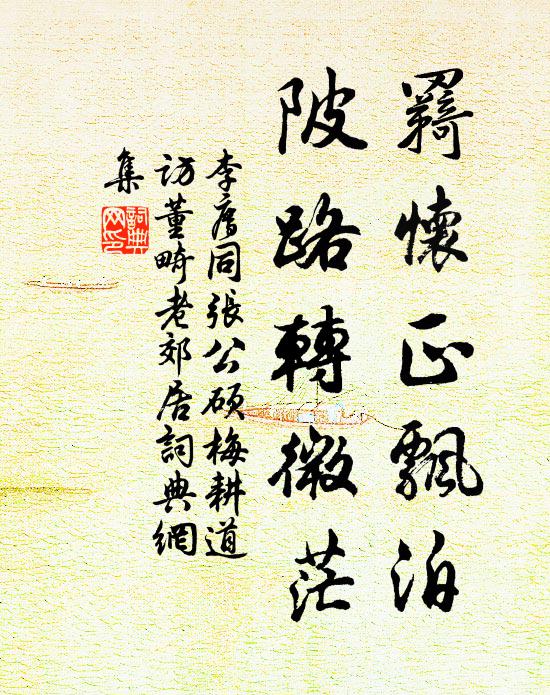 羇懷正飄泊
陂路轉微茫
李廌同張公碩梅耕道
訪董畸老郊居詞典網
集
詞典
网印